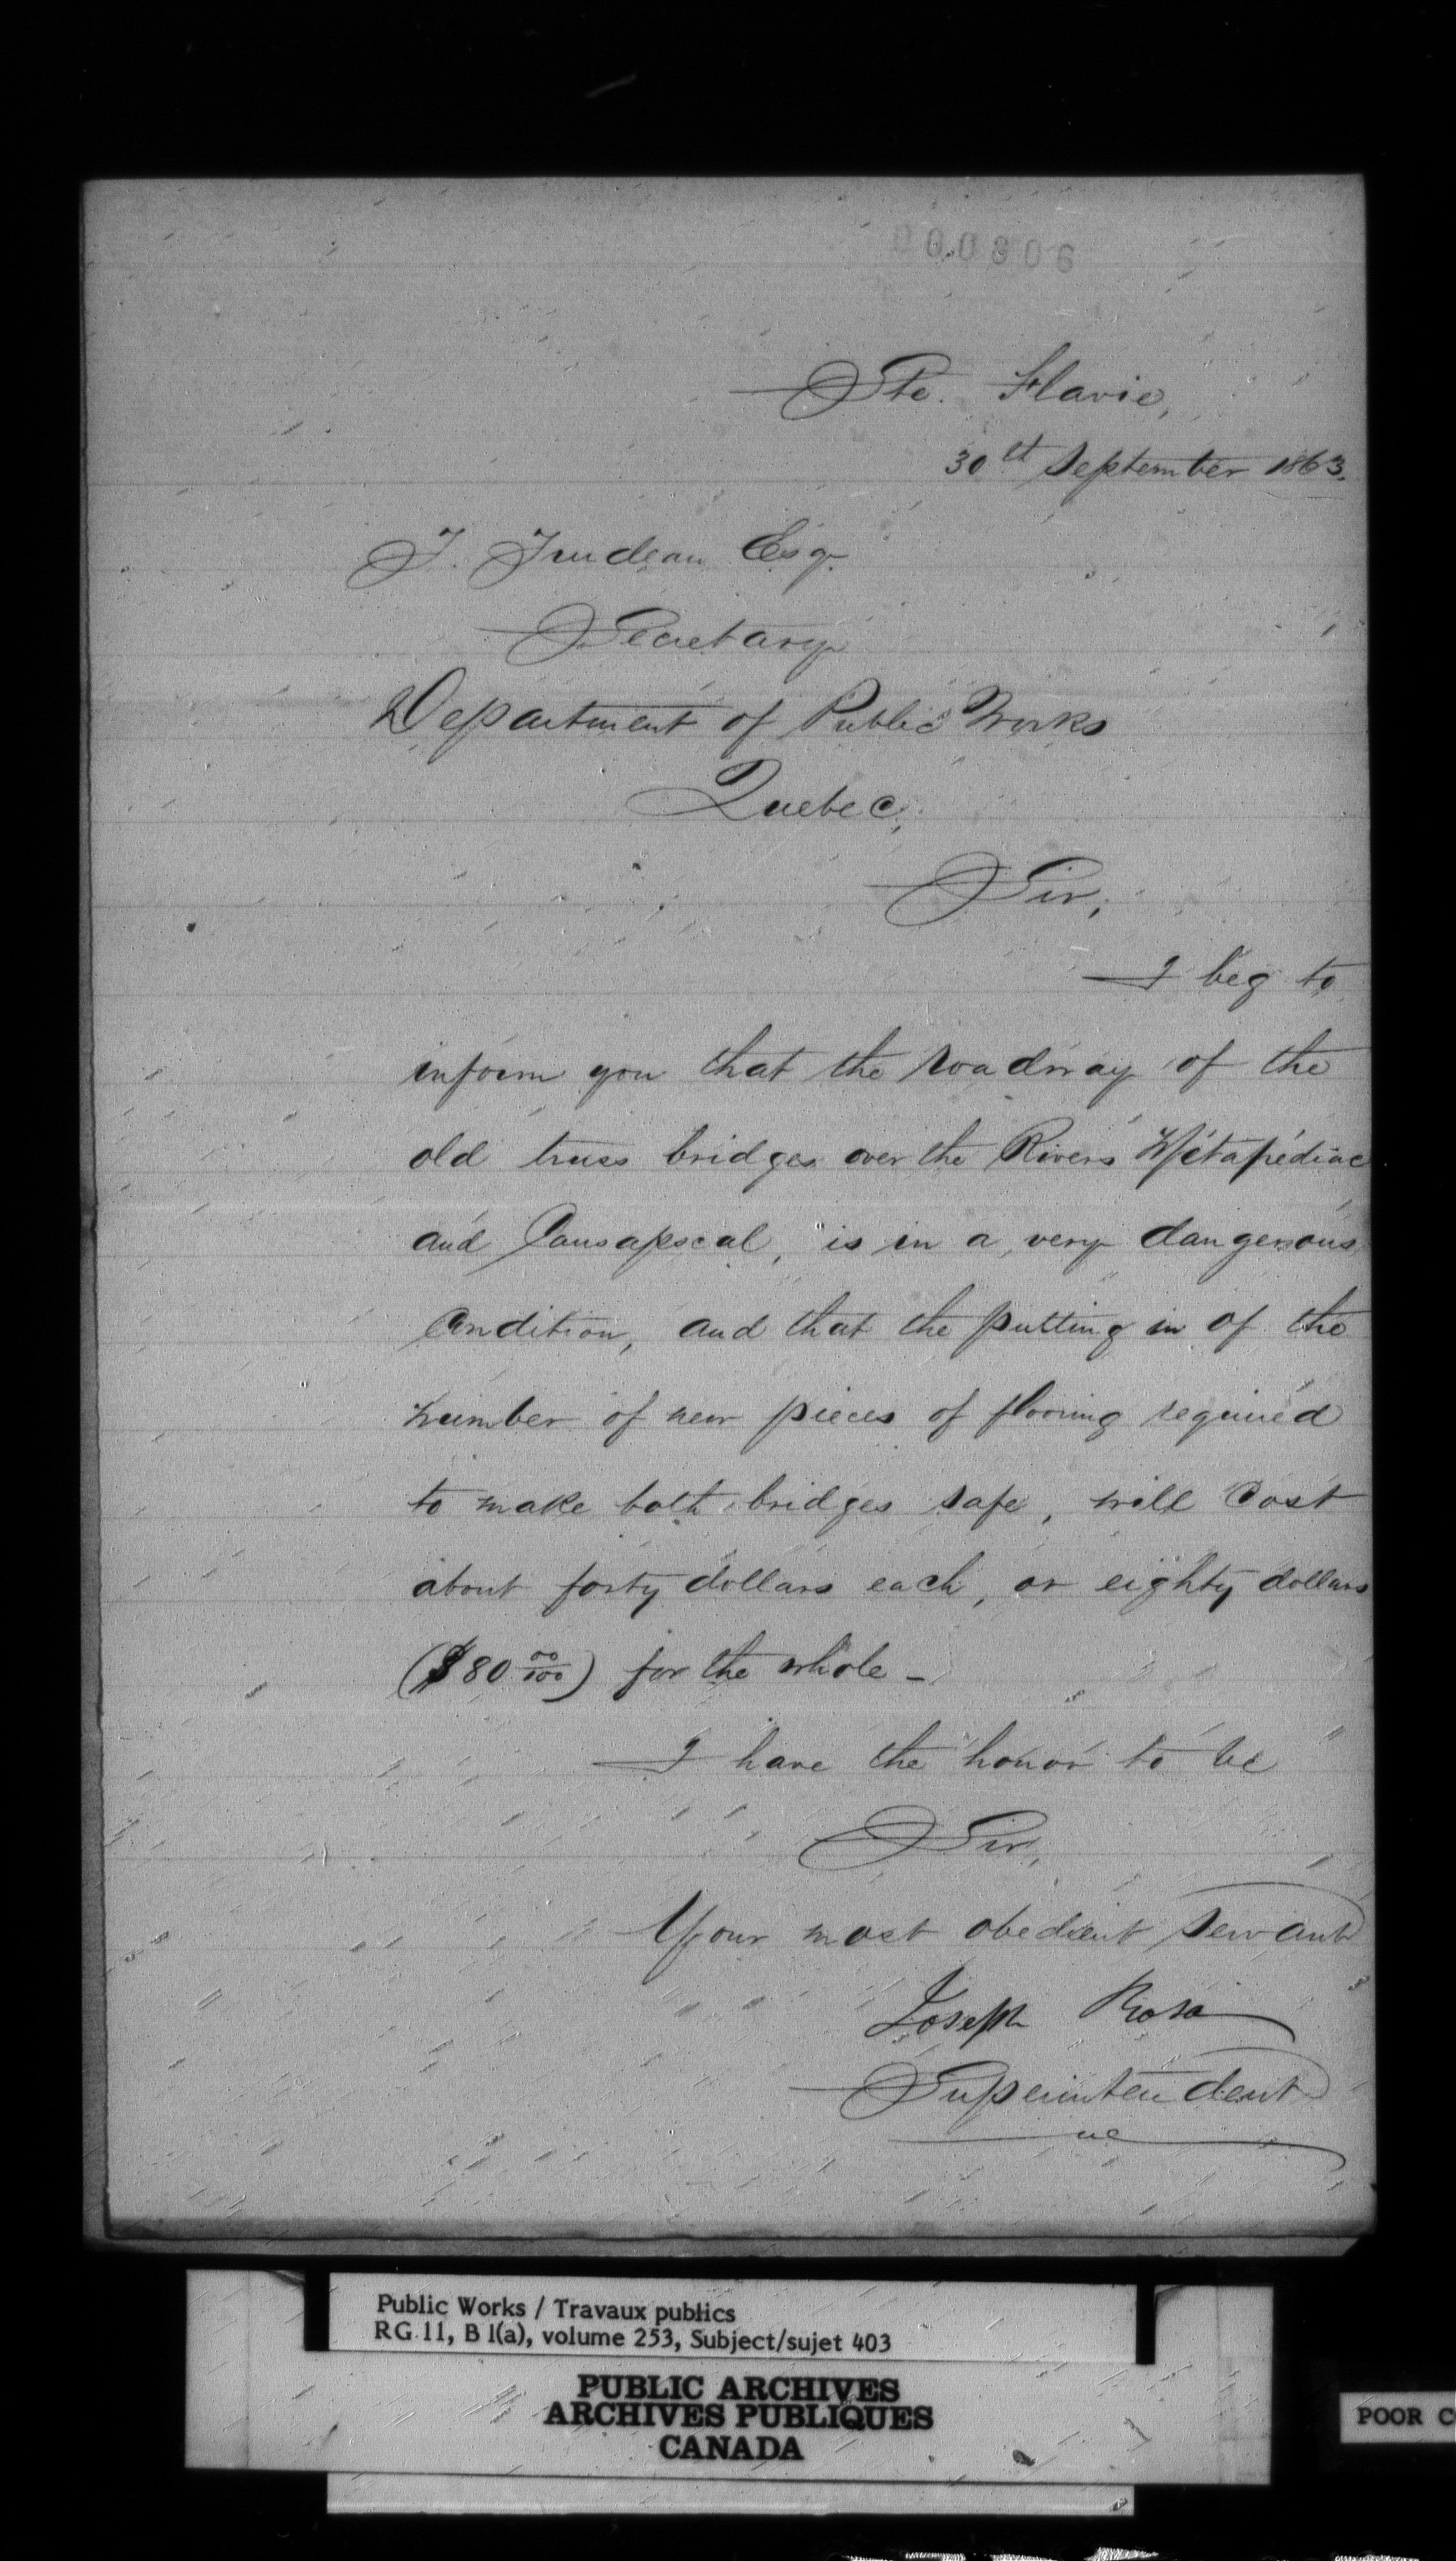 000306
Ste. Flavie,
30th September 1863.
T. Trudeau Esqr
Secretary
Department of Public Works
Quebec,
Sir,
I beg to
inform you that the roadway of the
old truss bridges over the Rivers Métapédiac
and Causapscal, is in a very dangerous
Condition, and that the putting in of the
number of new pieces of flooring required
to make both bridges safe, will Cost
about forty dollars each, or eighty dollars
($80 00/100) for the whole -
I have the honor to be
Sir,
Your most obedient Servant
Joseph Rosa
Superintendent
Public Works / Travaux publics
RG 11, B 1(a), volume 253, Subject/sujet 403
PUBLIC ARCHIVES
ARCHIVES PUBLIQUES
CANADA
POOR C